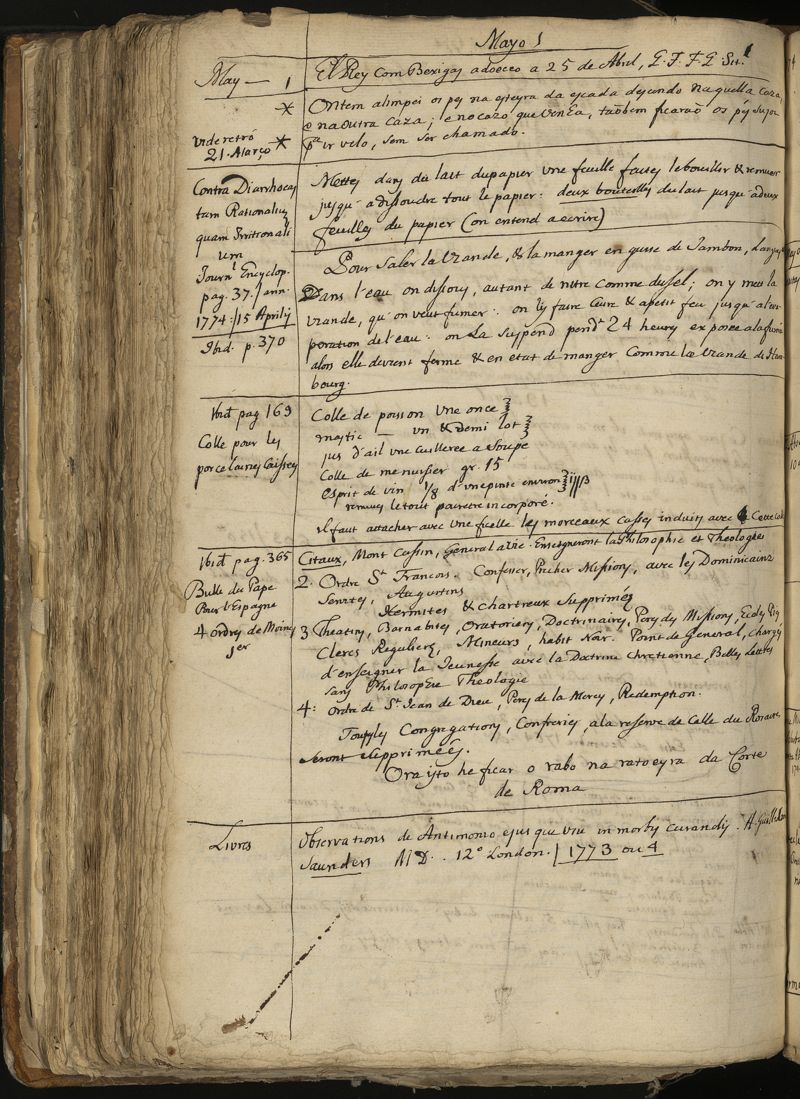 Mayo 1
May — 1
El Rey com Bexigas adoeceo a 25 de Abril,
Ontem alimpei os pes na esteyra da escada descendo naquella caza,
e na outra caza; e no cazo que venha, tãobem ficarão os pés sujos
pª ir velo, sem ser chamado.
vide retró
21. Março
Contra Diarrhoeas
tam Rationalium
quam Irrationali
um
Journl Encyclop.
pag. 37. / ann.
1774 / 15 Aprilij
Mettes dans du lait du papier une feuille faites le bouillir & remuer
jusqu'a dissoudre tout le papier: deux bouteilles du lait jusqu'a deux
feuilles du papier (on entend a ecrire)
Ibid. p. 370
Pour saler la viande, & la manger en guise de Jambon,
Dans l'eau on dissous, autant de nitre comme du sel; on y mets la
viande, qu'on veut fumer: on les faire cuire & a petit feu jusqu'a l'eva-
poration de l'eau: on la suspend pendt 24 heures exposée a la fumée
alors elle devient ferme & en etat de manger comme la viande de Ham-
bourg.
Ibid pag 169
Colle pour les
porcelaines Caissees
Colle de poisson une once
mastic — un & demi lot
jus d'ail une cuilleree a soupe
Colle de menuisier gr. 15
esprit de vin 1/8 d'une pinte environ
remues le tout pour etre incorporé.
il faut attacher avec une ficelle les morceaux cassés induits avec Cette
Ibid pag. 365
Bulle du Pape
Pour l'Espagne
4 ordres de Moines
1er
Citaux, Mont Cassin, General a vie. Enseigneront la Philosophie et Theologie
2. Ordre St Francois. Confesser, Precher Missions, avec les Dominicains
Servites, Augustins
Hermites & Chartreux supprimés
3 Theatins, Barnabites, Oratoriens, Doctrinaires, Peres des Missions,
Clercs Reguliers, Mineurs, habit Noir. Point de General, charges
d'enseigner la Jeunesse avec la Doctrine Chretienne, Belles Lettres
sans Philosophie Theologie
4: Ordre de St Jean de Dieu, Peres de la Mercy, Redemption.
Touttes Congregations, Confreries, a la reserve de Celle du Rosaire
seront supprimées.
Ora isto he ficar o rabo na ratoeyra da Corte
de Roma
Livros
Observations de Antimonio ejusque usu in morbis curandis.
Saunders MD. 12° London. / 1773 ou 4